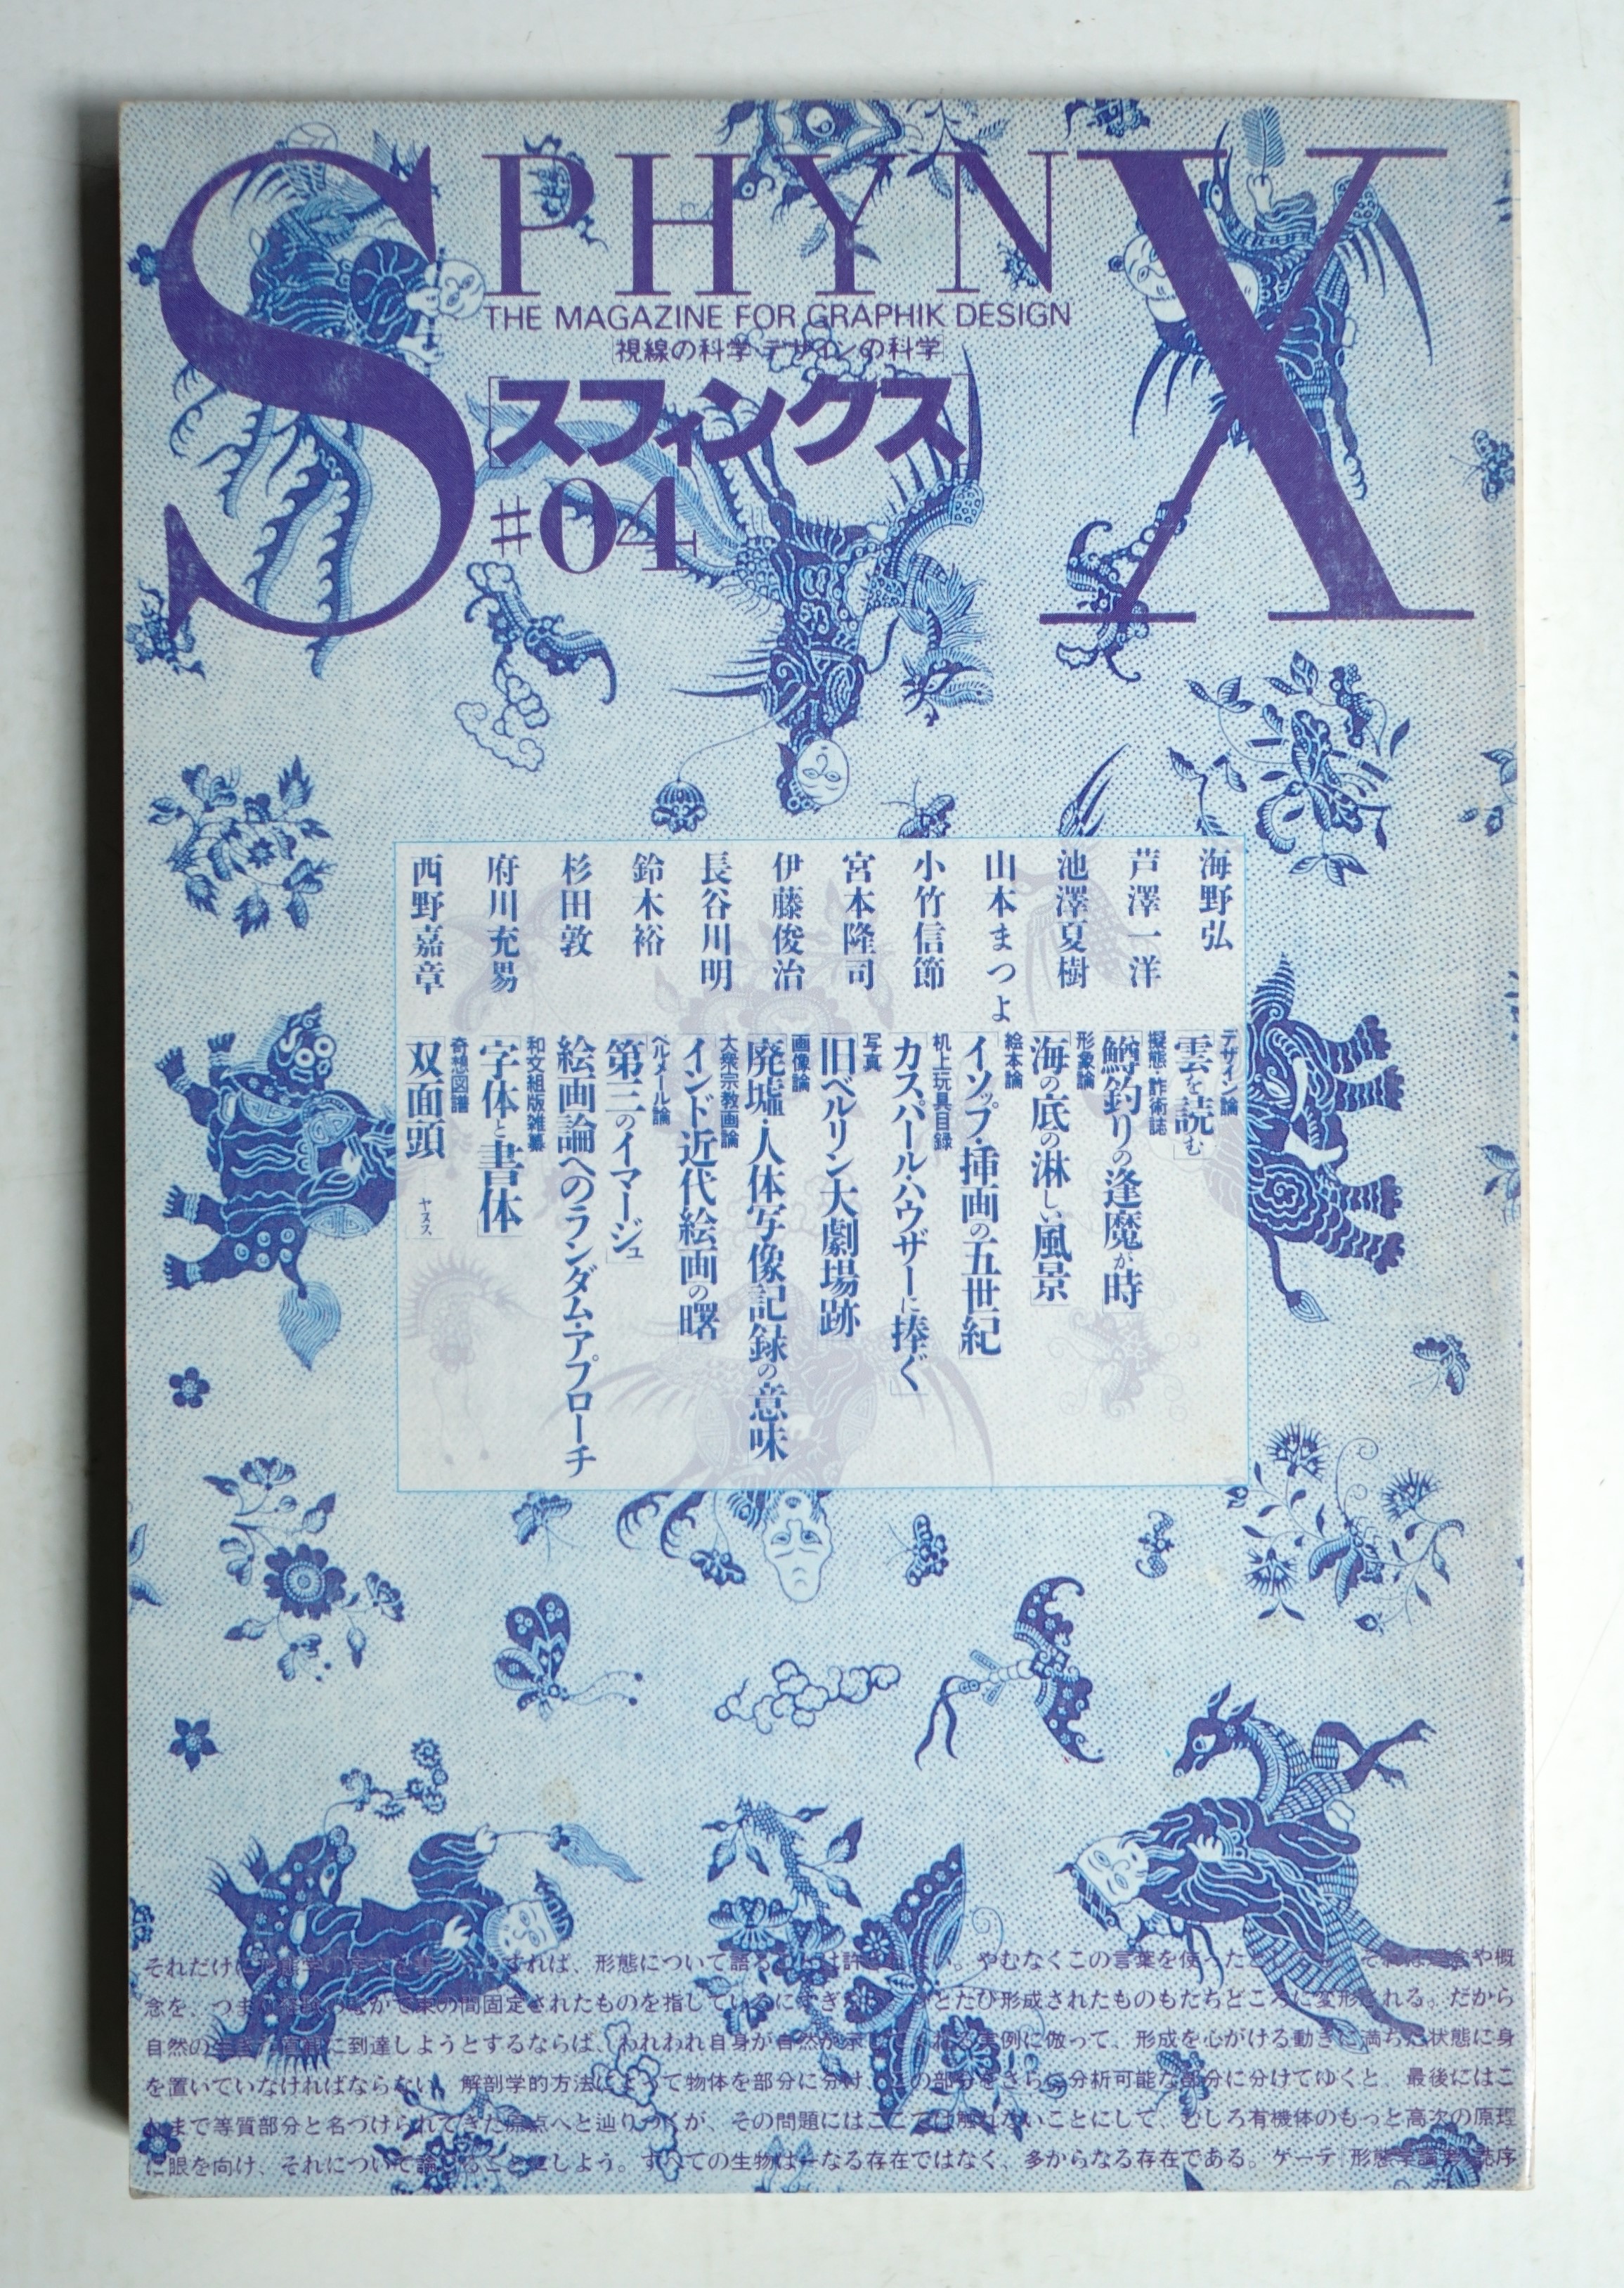 SPHYNX
THE MAGAZINE FOR GRAPHIK DESIGN
[視線の科学・デザインの科学]
[スフィンクス]
#04
海野弘
デザイン論
「雲を読む」
芦澤一洋
擬態・詐術誌
「鱒釣りの逢魔が時
池澤夏樹
形象論
「海の底の淋しい風景」
山本まつよ
絵本論
「イソップ・挿画の五世紀」
小竹信節
机上玩具目録
「カスパール・ハウザーに捧ぐ」
宮本隆司
写真
「旧ベルリン大劇場跡」
伊藤俊治
画像論
「廃墟・人体写像記録の意味」
長谷川明
大衆宗教画論
「インド近代絵画の曙」
鈴木裕
ヘルメール論
「第三のイマージュ」
杉田敦
絵画論へのランダム・アプローチ
府川充男
和文組版雑纂
「字体と書体」
西野嘉章
奇想図譜
「双面頭 ヤヌス」
それだけに形態学の すれば、形態について語る は許 ない。やむなくこの言葉を使った そ 概
念を、つま 束の間固定されたものを指しているにすぎ とたび形成されたものもたちどころに変形される。だから
自然の生き に到達しようとするならば、われわれ自身が自然が示してくれる実例に倣って、形成を心がける動きに満ちた状態に身
を置いていなければならない。解剖学的方法によって物体を部分に分け、この部分をさらに分析可能な部分に分けてゆくと、最後にはこ
れまで等質部分と名づけられてきた原点へと辿りつくが、その問題にはここでは触れないことにして、むしろ有機体のもっと高次の原理
に眼を向け、それについて論 ることにしよう。すべての生物は一なる存在ではなく、多からなる存在である。ゲーテ 形態学論考 誌序